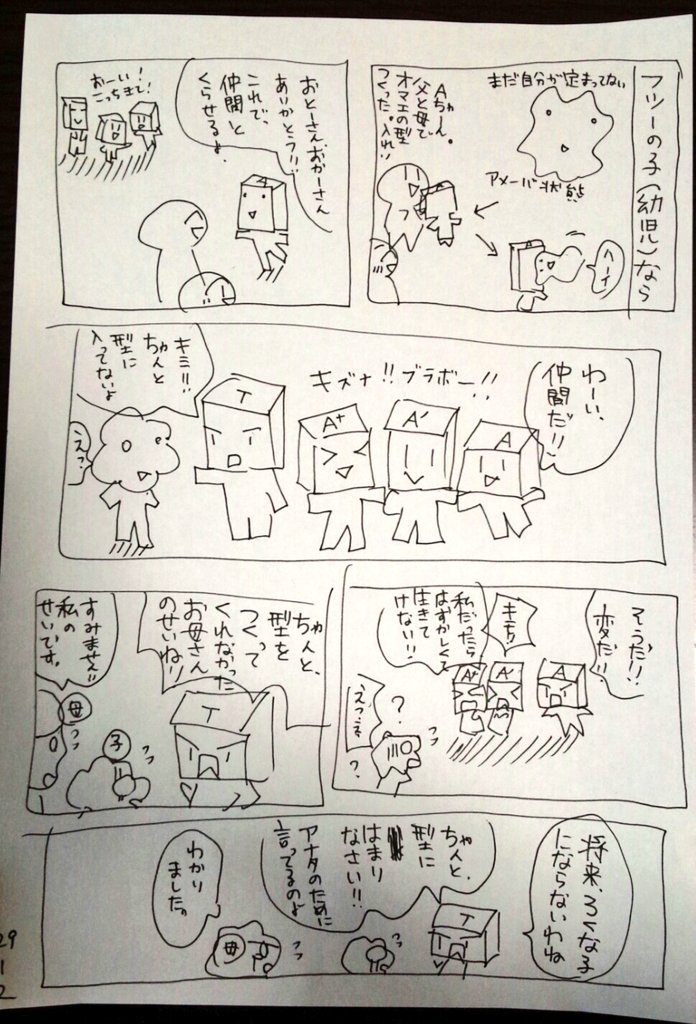 フツーの子(幼児)なら
まだ自分が定まってない
アメーバー状態
Aちゃーん。
父と母で
オマエの型
つくった。入れ!!
A
ハーイ
A
おとーさん、おかーさん
ありがとう!!
これで、
仲間と
くらせるよ。
A
おーい!
こっちまし!
わーい、
仲間だ!!
キズナ!!ブラボー!!
A
A'
A+
T
キミ!!
ちゃんと
型に
入ってないよ
えっ?
そうだ!!
変だ!!
キモッ
私だったら
はずかしくて
生きて
けない!!
A
A'
A+
えっ
?
?
ちゃんと、
型を
つくって
くれなかった
お母さん
のせいね!!
T
すみません!!
私の
せいです。
母
子
将来、ろくな子
にならないわね
ちゃんと、
型に
はまり
なさい!!
アナタのために
言ってるのよ
T
わかり
ました。
母
29
1
2